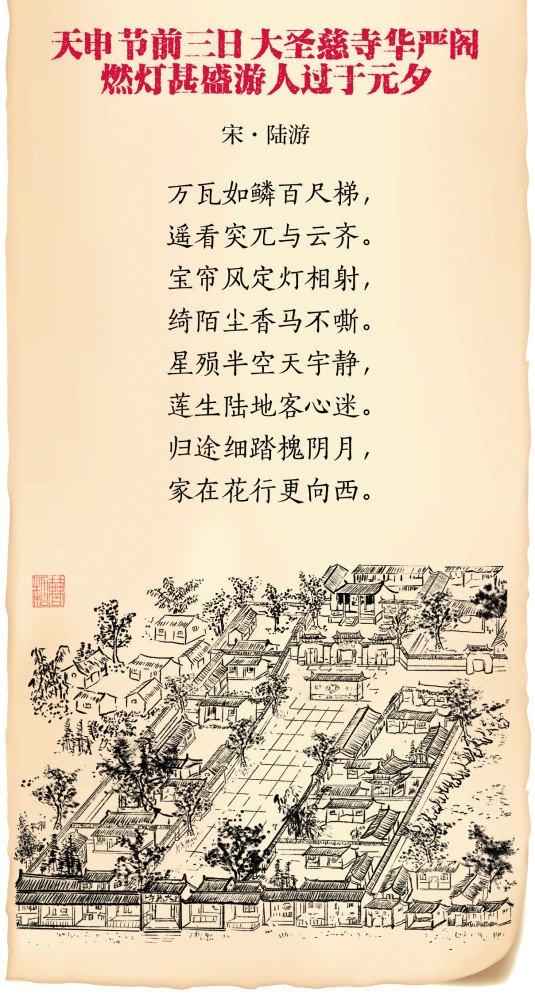 天申节前三日大圣慈寺华严阁
燃灯甚盛游人过于元夕
宋·陆游
万瓦如鳞百尺梯，
遥看突兀与云齐。
宝帘风定灯相射，
绮陌尘香马不嘶。
星殒半空天宇静，
莲生陆地客心迷。
归途细踏槐阴月，
家在花行更向西。